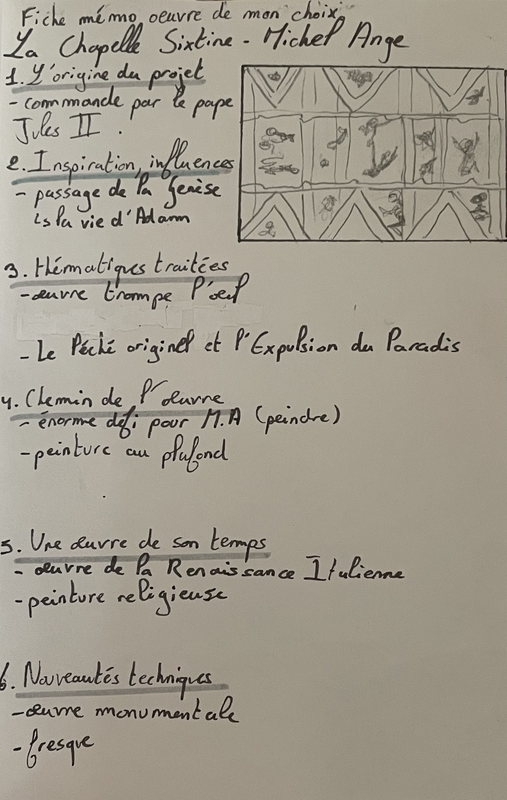 Fiche mémo oeuvre de mon choix
La Chapelle Sixtine - Michel Ange
1. L'origine du projet
- commande par le pape
Jules II.
2. Inspiration, influences
- passage de la Genèse
↳ la vie d'Adam
3. thématiques traitées
- œuvre trompe l'œil
- Le Péché originel et l'Expulsion du Paradis
4. Chemin de l'œuvre
- énorme défi pour M.A (peindre)
- peinture au plafond
5. Une œuvre de son temps
- œuvre de la Renaissance Italienne
- peinture religieuse
6. Nouveautés techniques
- œuvre monumentale
- fresque